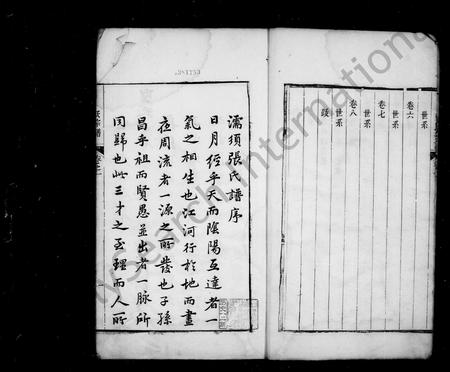 卷六
世系
卷七
世系
卷八
世系
跋
濡須張氏譜序
日月經乎天而陰陽互運者一
氣之相生也江河行於地而晝
夜周流者一源之所發也子孫
昌乎祖而賢愚並出者一脉所
同歸也此三才之至理而人所